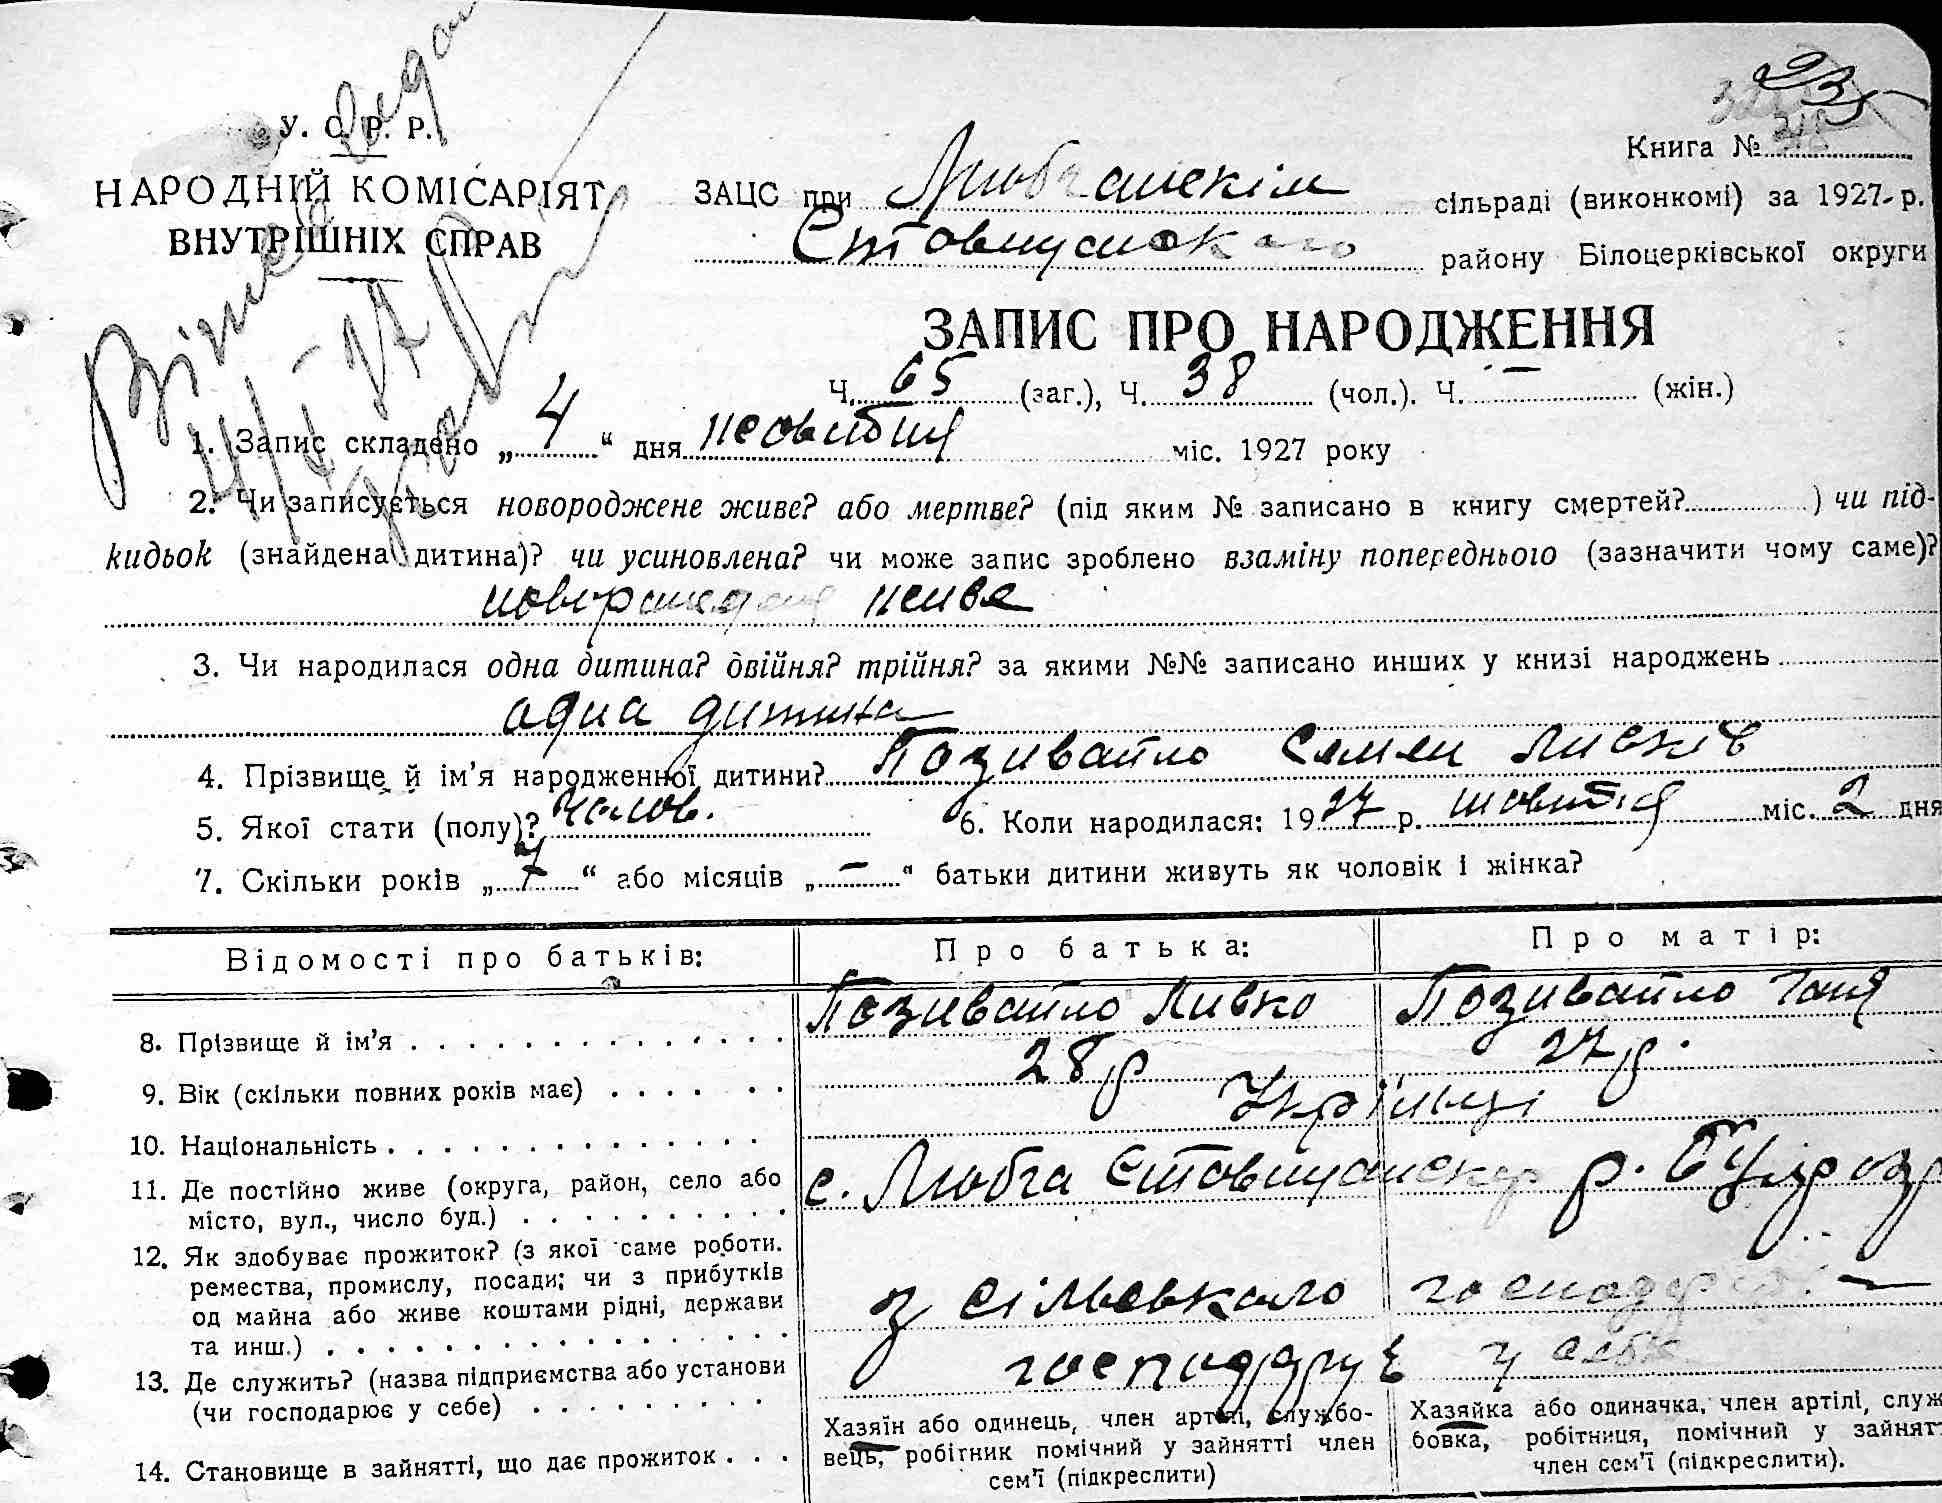 У. С. Р. Р.
НАРОДНІЙ КОМІСАРІЯТ
ВНУТРІШНІХ СПРАВ
23
Книга №
ЗАЦС при сільраді (виконкомі) за 1927 р.
району Білоцерківської округи
ЗАПИС ПРО НАРОДЖЕННЯ
Ч. 65 (заг.), Ч. 38 (чол.). Ч. — (жін.)
1. Запис складено „ 4 “ дня міс. 1927 року
2. Чи записується новороджене живе? або мертве? (під яким № записано в книгу смертей? ) чи під-
кидьок (знайдена дитина)? чи усиновлена? чи може запис зроблено взаміну попереднього (зазначити чому саме)?
живе
3. Чи народилася одна дитина? двійня? трійня? за якими №№ записано инших у книзі народжень
одна дитина
4. Прізвище й ім’я народженної дитини? Позивайло Семен Ливків
5. Якої стати (полу)? чолов. 6. Коли народилася: 1927 р. міс. 2 дня
7. Скільки років „ 7 “ або місяців „ — “ батьки дитини живуть як чоловік і жінка?
Відомості про батьків: Про батька: Про матір:
8. Прізвище й ім’я Позивайло Ливко Позивайло Ганя
9. Вік (скільки повних років має) 28 р 27 р.
10. Національність Укрїнці
11. Де постійно живе (округа, район, село або
місто, вул., число буд.) с. Любча р.
12. Як здобуває прожиток? (з якої саме роботи.
ремества, промислу, посади; чи з прибутків
од майна або живе коштами рідні, держави
та инш.) з сільского
13. Де служить? (назва підприємства або установи
(чи господарює у себе) господарує у себе
14. Становище в зайнятті, що дає прожиток
Хазяїн або одинець, член артілі, службо-
вець, робітник помічний у зайнятті член
сем’ї (підкреслити)
Хазяйка або одиначка, член артілі, служ
бовка, робітниця, помічний у зайнят
член сем’ї (підкреслити).